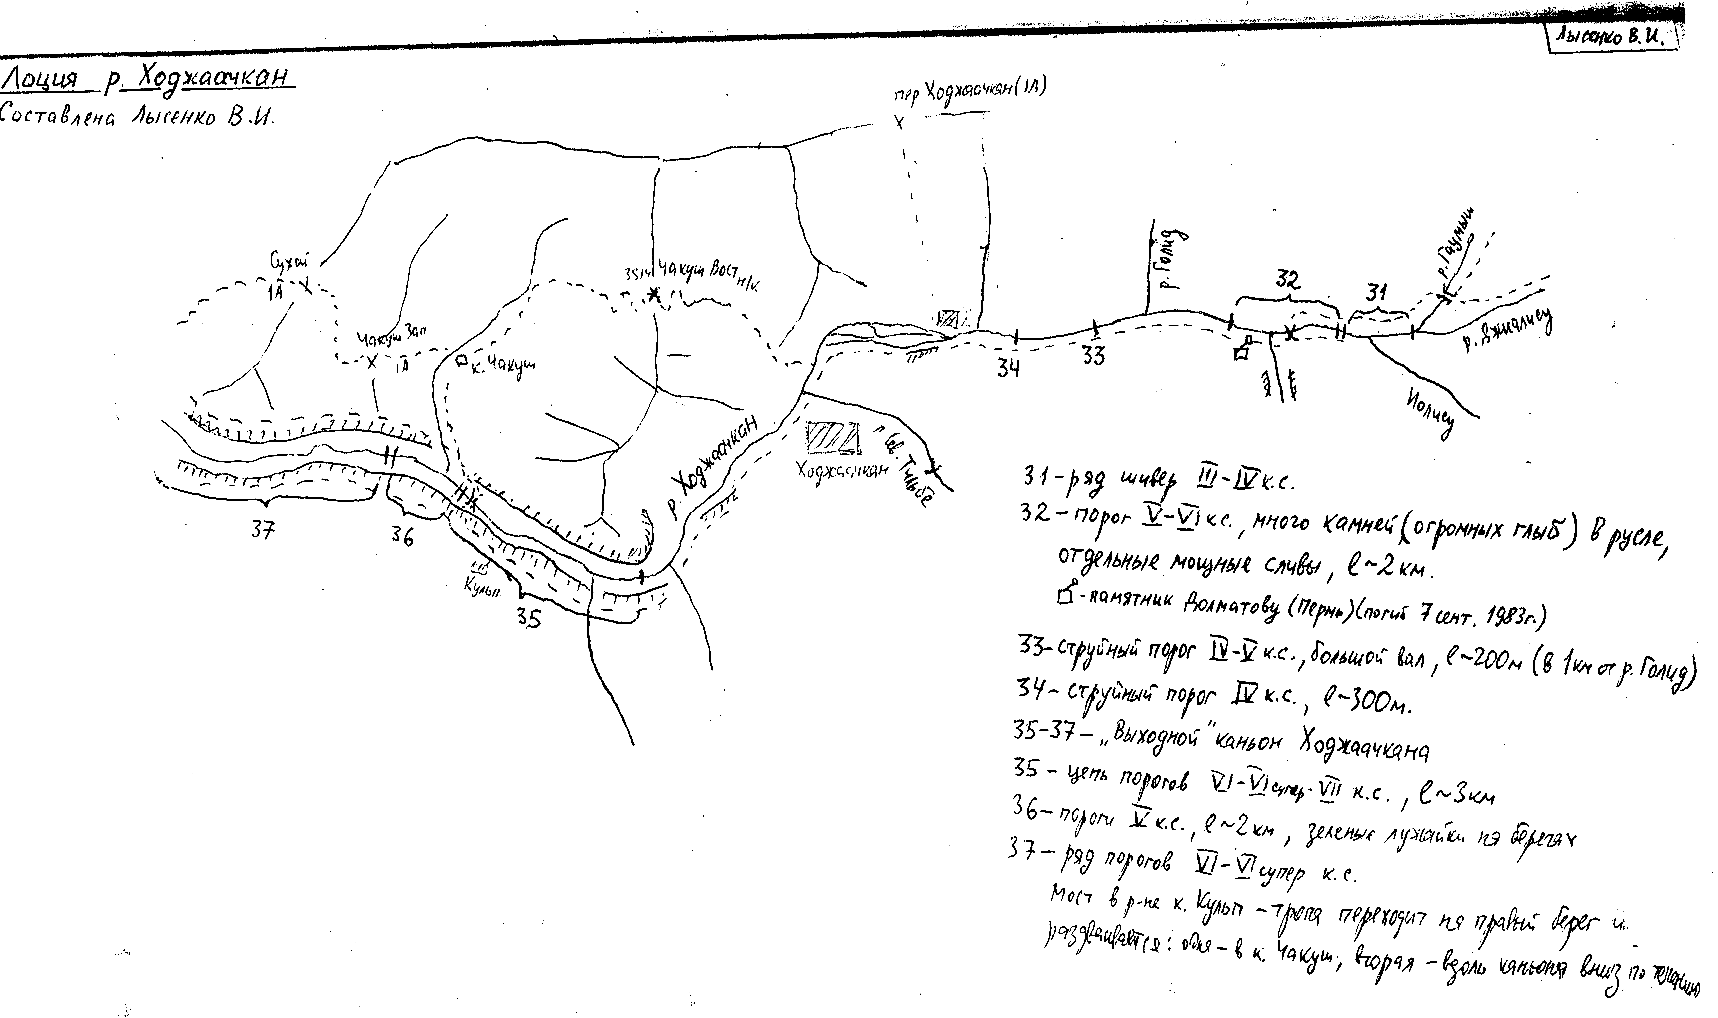 Лысенко В.И.
Лоция р. Ходжаачкан
Составлена Лысенко В.И.
пер Ходжаачкан (1А)
Сухой
1А
Чакуш Вост
н/к.
Чакуш Зап
1А
к. Чакуш
р. Голид
р. Гаумыш
32
31
р. Джиалису
Иолису
34
33
р. Ходжаачкан
Ходжаачкан
Сев. Тильбе
37
36
Кульп
35
31-ряд шивер III-IV к.с.
32-порог V-VI к.с., много камней (огромных глыб) в русле,
отдельные мощные сливы, l~2 км.
-памятник Долматову (Пермь) (погиб 7 сент. 1983г.)
33-струйный порог IV-V к.с., большой вал, l~200м (в 1км от р. Голид)
34-струйный порог IV к.с., l~300м.
35-37-„Выходной" каньон Ходжаачкана
35-цепь порогов VI-VI супер-VII к.с., l~3км
36-пороги V к.с., l~2км, зеленые лужайки на берегах
37-ряд порогов VI-VI супер к.с.
Мост в р-не к. Кульп - тропа переходит на правый берег и
раздваивается: одна - в к. Чакуш, вторая - вдоль каньона вниз по течению